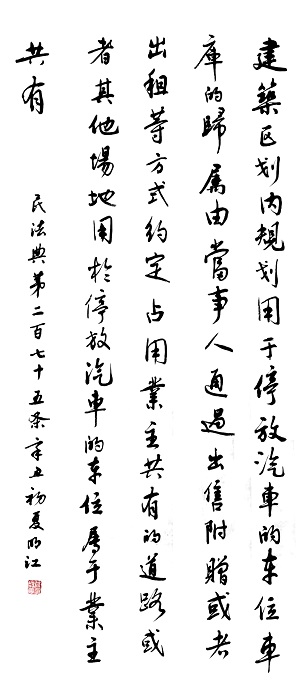 建築区划内規划用于停放汽車的车位車
庫的歸属由當事人通過出售附贈或者
出租等方式約定占用業主共有的道路或
者其他場地用於停放汽車的车位属于業主
共有
民法典第二百七十五条辛丑初夏明江